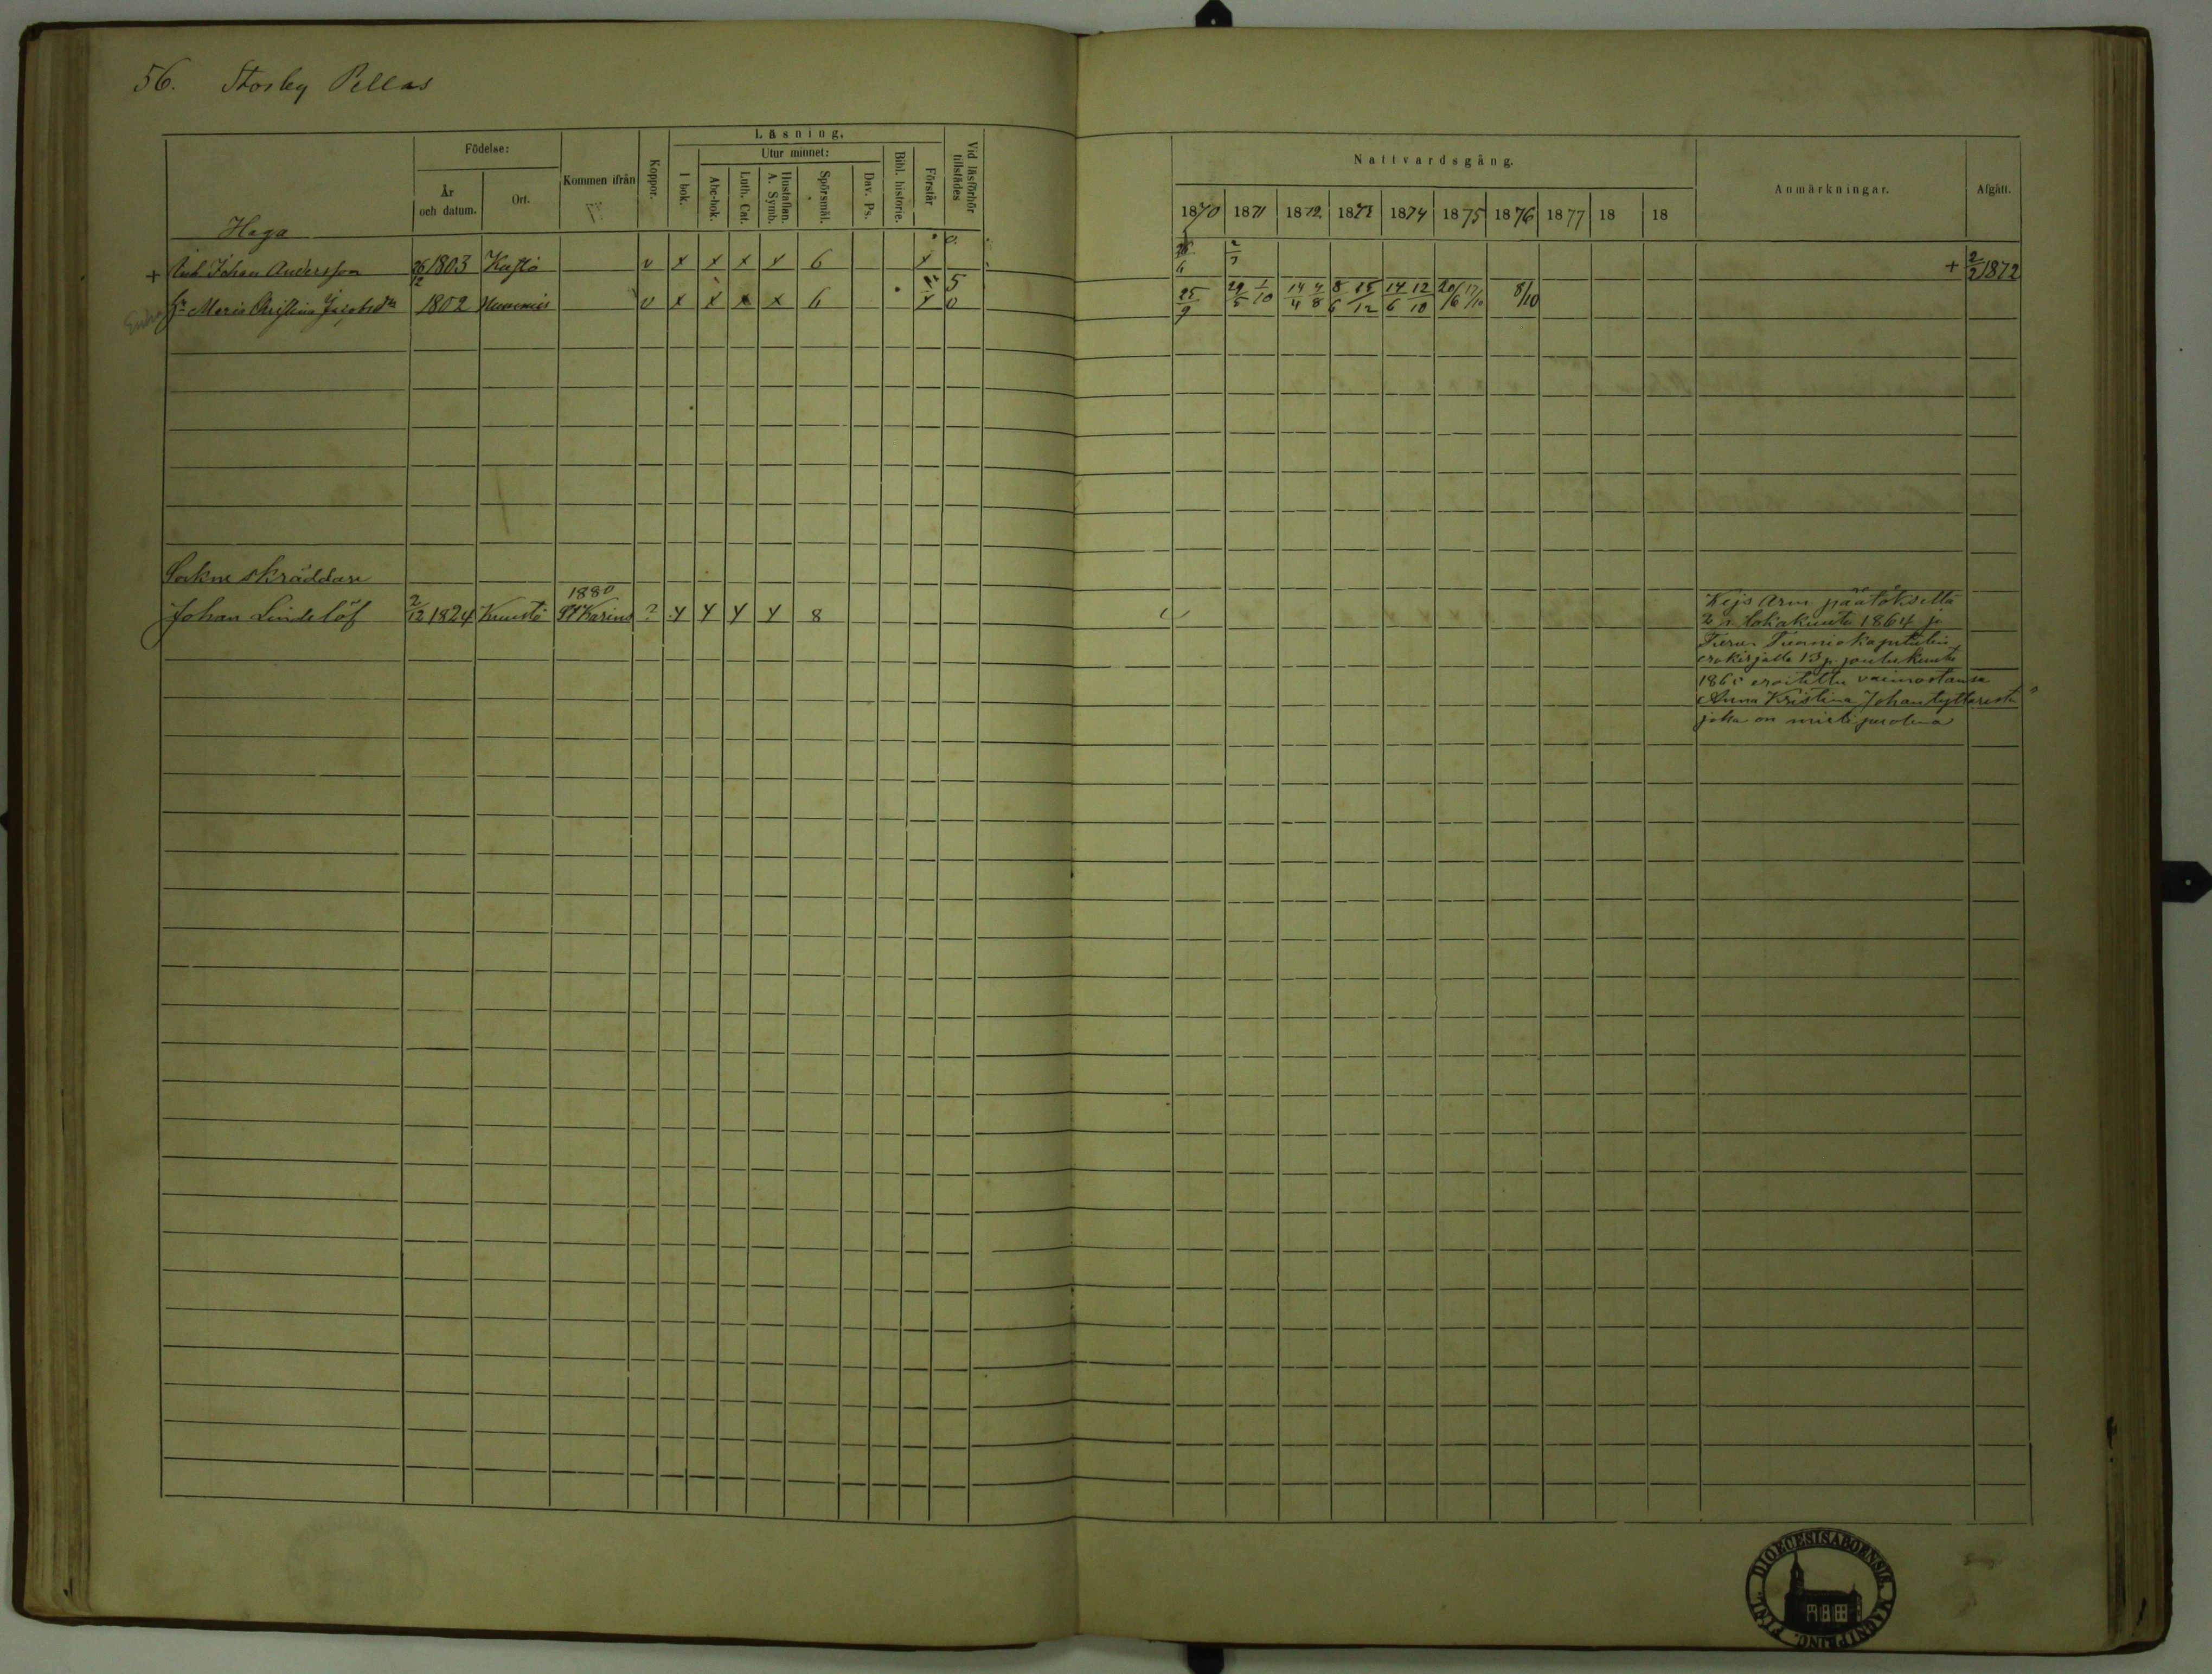 56. Storby Pellas
Födelse:
År och datum.
Ort.
Kommen ifrån
Koppor.
Läsning.
I bok.
Utur minnet:
Abc-bok.
Luth. Cat.
Hustaflan. A. Symb.
Spörsmål.
Dav. Ps.
Bibl. historie.
Förstår
Vid läsförhör tillstädes
Nattvardsgång.
1870 1871 1872 1873 1874 1875 1876 1877 18 18
Anmärkningar.
Afgått.
Haga
+ Johan Andersson 26/12 1803 Kustö v x x x x 6 x + 2/2 1872
Hu Maria Christina Jacobsdr 1802 Nummis v x x x x 6 x 0 25/9 29/5 1/10 14/4 4/8 8/6 25/12 14/6 12/10 20/6 17/10 8/10
Enka
Sockne skräddare
1880
Johan Lindelöf 2/12 1824 Kuustö Karins ? x x x x 8
Kejs Arm päätöksellä
2 p. lokakuuta 1864 ja
Turun Tuomiokapitulin
erokirjalla 13 p. joulukuuta
1865 eroitettu vaimostansa
Anna Kristina Johantyttärestä
joka on
DIOECESIS ABOENSIS. MAGNI PRINC. FINL.